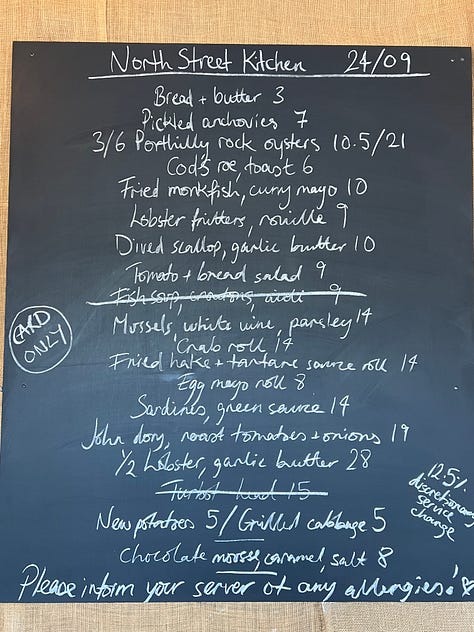 North Street Kitchen 24/09
Bread + butter 3
Pickled anchovies 7
3/6 Porthilly rock oysters 10.5/21
Cod's roe toast 6
Fried monkfish, curry mayo 10
Lobster fritters, rouille 9
Dived scallop, garlic butter 10
Tomato + bread salad 9
Fish soup, croutons, aioli 9
Mussels, white wine, parsley 14
Crab roll 14
Fried hake + tartare sauce roll 14
Egg mayo roll 8
Sardines, green sauce 14
John dory, roast tomatoes + onions 19
1/2 Lobster, garlic butter 28
Turbot head 15
New potatoes 5 / Grilled cabbage 5
Chocolate mousse, caramel, salt 8
Please inform your server of any allergies!
CARD
ONLY
12.5%
discretionary
service
charge